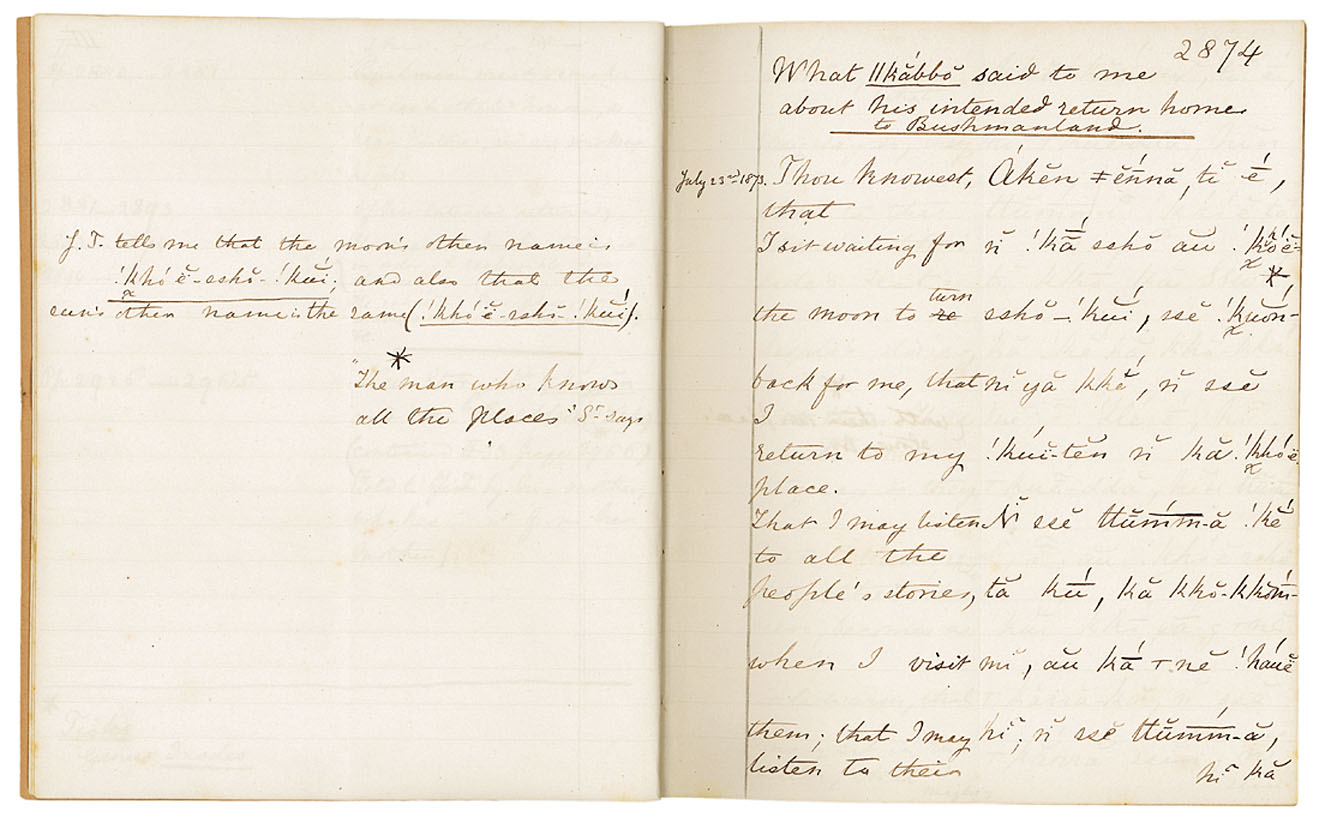 J.T. tells me that the moon's other name is
!khó̆ĕ-sshŏ-!kúĭ; and also that the
sun's other name is the same (!khó̆ĕ-sshŏ-!kúĭ).
*
"The man who knows
all the places" Sr says
2874
What ||kăbbŏ said to me
about his intended return home
to Bushmanland.
July 23rd 1873. Thou knowest, Ákĕn ǂĕńnă, tĭ é,
that
I sit waiting for ń !ká sshŏ aŭ !khóĕ-
*
turn
the moon to re sshŏ-!kúĭ, ssĕ !kuŏń-
back for me, that ń yă kkĕ́, ń ssĕ
I
return to my !kúĭ-tĕn ń ka !khóĕ
place.
That I may listen Ń ssĕ ttŭḿm-ă !kĕ́
to all the
people's stories, tă kú, kă kkŏ-kkŏḿ-
when I visit mĭ, aŭ ká ⊤ nĕ !háuĕ
them; that I may hĭ; ń ssĕ ttŭḿm-ă,
listen to their hĭ kă